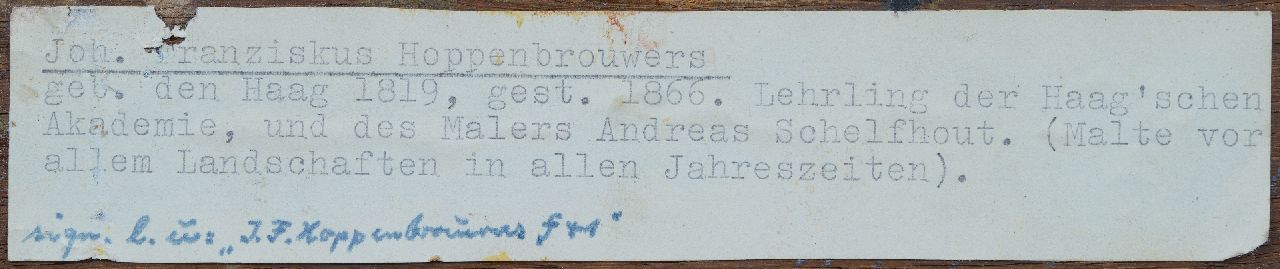 Joh. Franziskus Hoppenbrouwers
geb. den Haag 1819, gest. 1866. Lehrling der Haag'schen
Akademie, und des Malers Andreas Schelfhout. (Malte vor
allem Landschaften in allen Jahreszeiten).
sign. l. u: „J.F. Hoppenbrouwers f